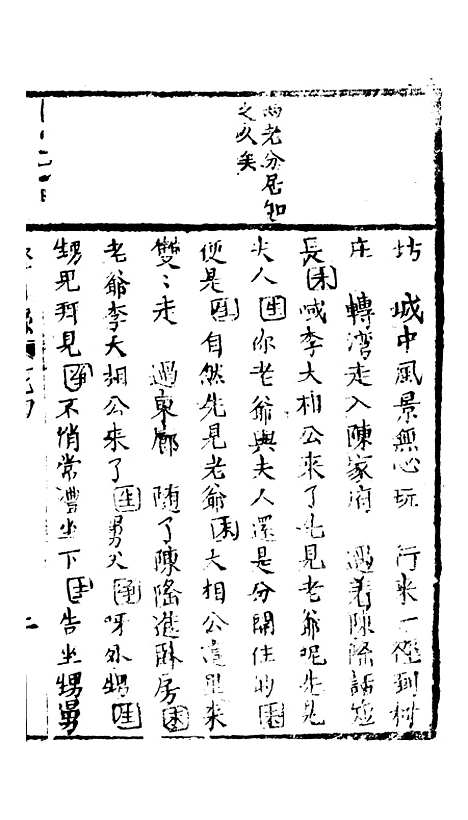 兩老分居如
之久矣
坊 城中風景無心玩 行來一徑到村
庄 轉湾走入陳家府 遇着陳隆話短
長末㖑李大相公來了先見老爺呢先見
夫人生你老爺與夫人還是分開住的末
便是生自然先見老爺末大相公這里來
雙〻走 過東廊 随了陳隆進卧房末
老爺李大相公來了生舅父淨呀外甥生
甥児拜見淨不消常禮坐下生告坐甥舅